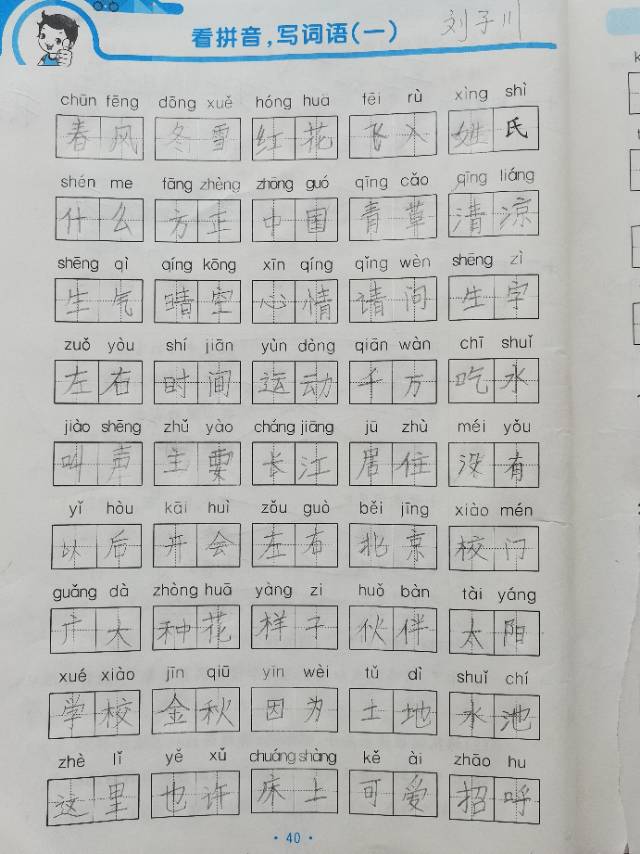 看拼音,写词语(一) 刘子川
chūn fēng dōng xuě hóng huā fēi rù xìng shì
春风 冬雪 红花 飞入 姓氏
shén me fāng zhèng zhōng guó qīng cǎo qīng liáng
什么 方正 中国 青草 清凉
shēng qì qíng kōng xīn qíng qǐng wèn shēng zì
生气 晴空 心情 请问 生字
zuǒ yòu shí jiān yùn dòng qiān wàn chī shuǐ
左右 时间 运动 千方 吃水
jiào shēng zhǔ yào cháng jiāng jū zhù méi yǒu
叫声 主要 长江 居住 没有
yǐ hòu kāi huì zǒu guò běi jīng xiào mén
以后 开会 左右 北京 校门
guǎng dà zhòng huā yàng zi huǒ bàn tài yáng
广大 种花 样子 伙伴 太阳
xué xiào jīn qiū yīn wèi tǔ dì shuǐ chí
学校 金秋 因为 土地 水池
zhè lǐ yě xǔ chuáng shàng kě ài zhāo hu
这里 也许 床上 可爱 招呼
· 40 ·